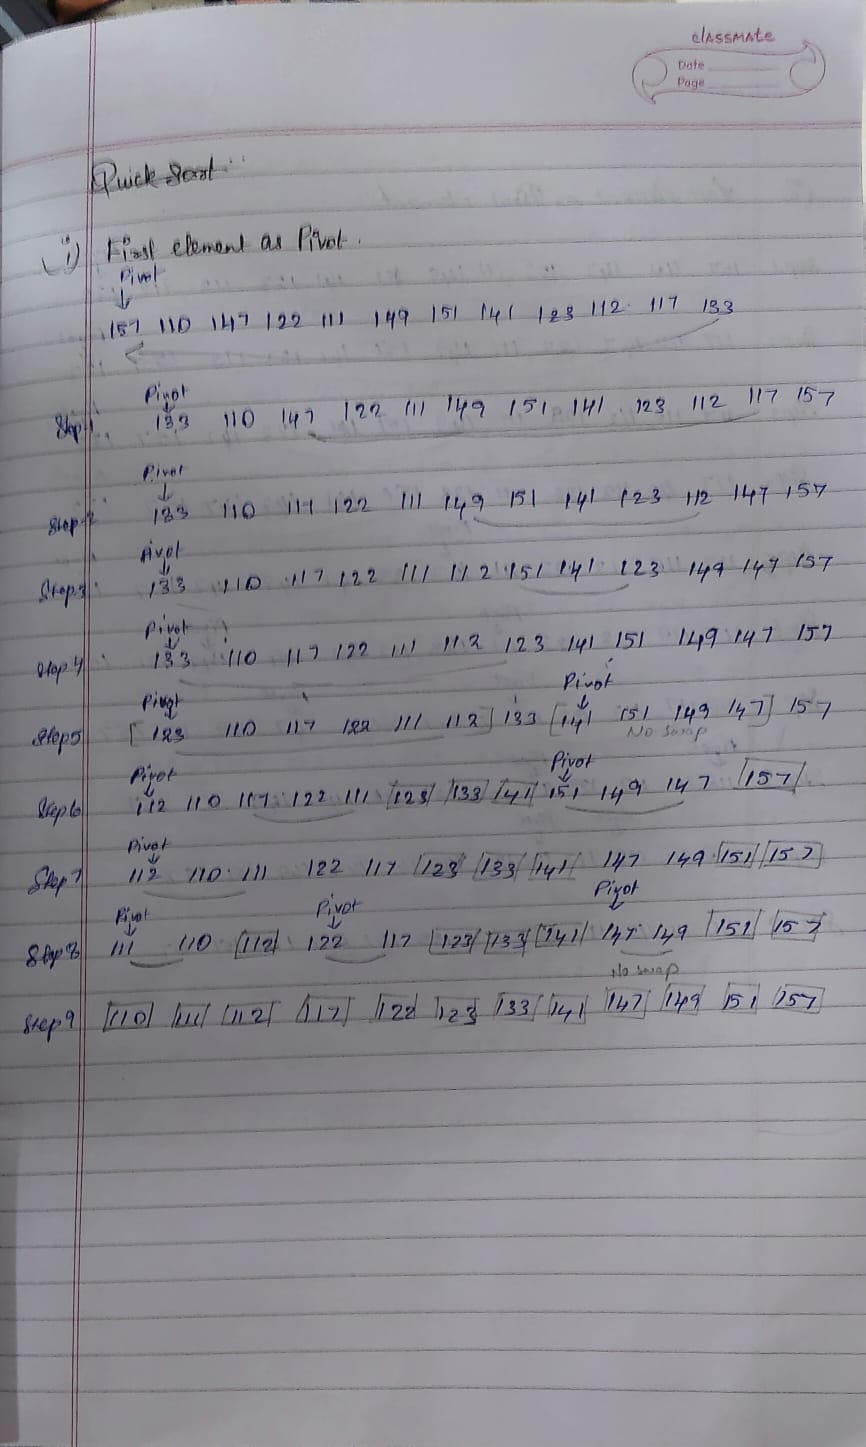 classmate
Date
Page
Quick Sort :
i) First element as Pivot.
Pivot
157 110 147 122 111 149 151 141 123 112 117 133
Pivot
Step 1 133 110 147 122 111 149 151 141 123 112 117 157
Pivot
Step 2 133 110 117 122 111 149 151 141 123 112 147 157
Pivot
Step 3 133 110 117 122 111 112 151 141 123 149 147 157
Pivot
Step 4 133 110 117 122 111 112 123 141 151 149 147 157
Pivot Pivot
Step 5 [123 110 117 122 111 112] 133 [141 151 149 147] 157
No swap
Pivot Pivot
Step 6 112 110 117 122 111 123 133 141 151 149 147 157
Pivot
Step 7 112 110 111 122 117 123 133 141 147 149 151 157
Pivot Pivot Pivot
Step 8 111 110 112 122 117 123 133 141 147 149 151 157
No swap
Step 9 110 111 112 117 122 123 133 141 147 149 151 157